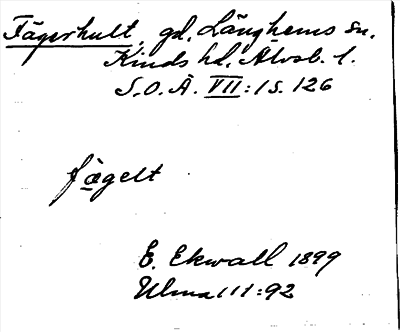 Fägerhult, gd, Länghems sn,
Kinds hd, Älvsb. l.
S.O.Ä. VII:1 s. 126
fägelt
E. Ekwall 1899
Ulma 111:92